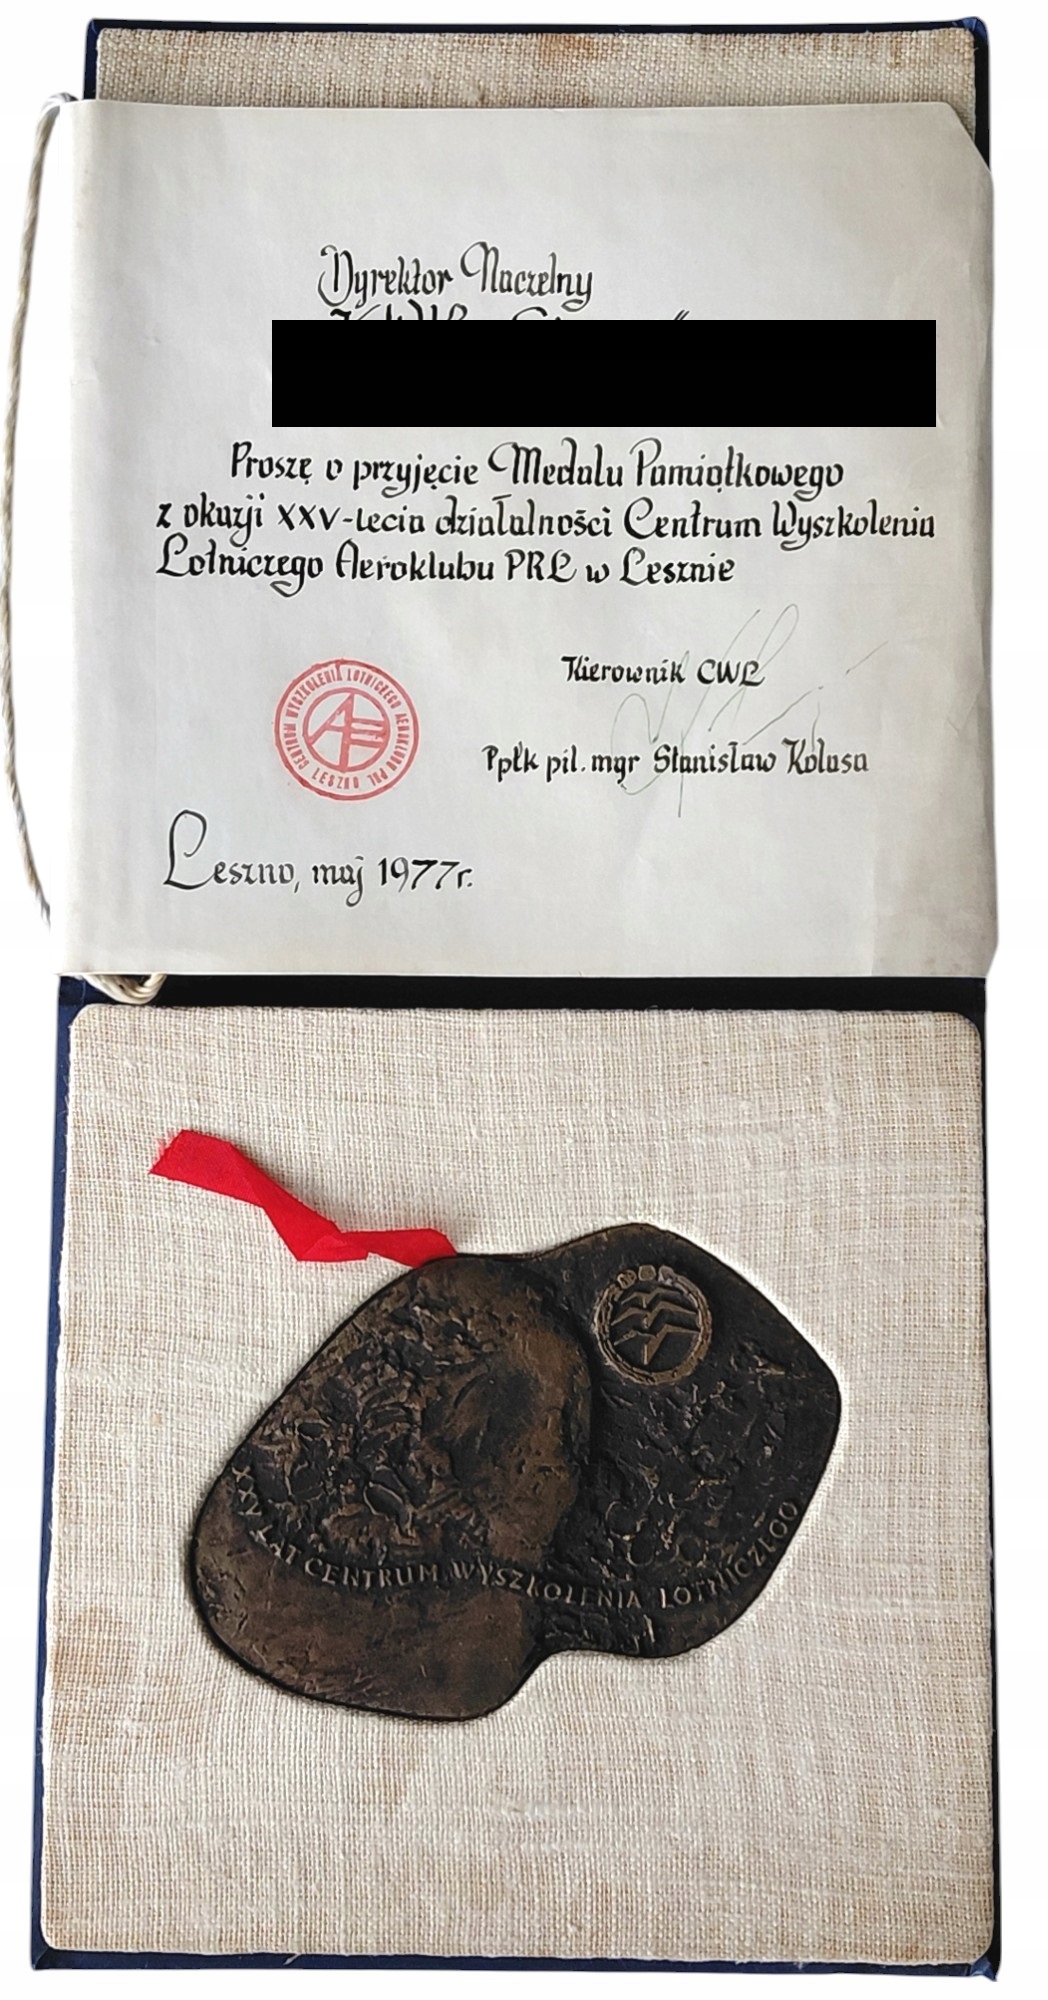 Dyrektor Naczelny
Proszę o przyjęcie Medalu Pamiątkowego
z okazji XXV-lecia działalności Centrum Wyszkolenia
Lotniczego Aeroklubu PRL w Lesznie
Kierownik CWL
Ppłk pil. mgr Stanisław Kolasa
CENTRUM WYSZKOLENIA LOTNICZEGO AEROKLUBU PRL LESZNO
Leszno, maj 1977r.
XXV LAT CENTRUM WYSZKOLENIA LOTNICZEGO